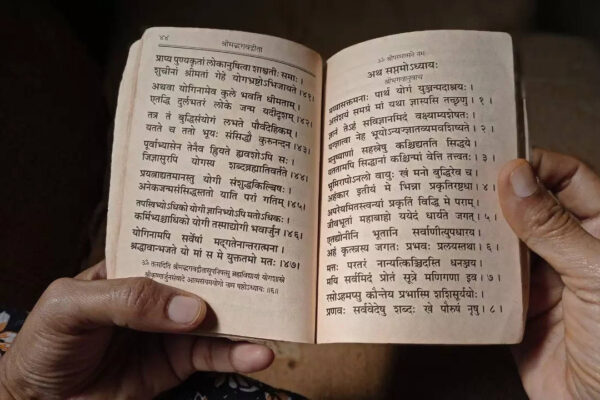 ४४
श्रीमद्भगवद्गीता
प्राप्य पुण्यकृतां लोकानुषित्वा शाश्वतीः समाः ।
शुचीनां श्रीमतां गेहे योगभ्रष्टोऽभिजायते ।४१।
अथवा योगिनामेव कुले भवति धीमताम् ।
एतद्धि दुर्लभतरं लोके जन्म यदीदृशम् ।४२।
तत्र तं बुद्धिसंयोगं लभते पौर्वदेहिकम् ।
यतते च ततो भूयः संसिद्धौ कुरुनन्दन ।४३।
पूर्वाभ्यासेन तेनैव ह्रियते ह्यवशोऽपि सः ।
जिज्ञासुरपि योगस्य शब्दब्रह्मातिवर्तते ।४४।
प्रयत्नाद्यतमानस्तु योगी संशुद्धकिल्बिषः ।
अनेकजन्मसंसिद्धस्ततो याति परां गतिम् ।४५।
तपस्विभ्योऽधिको योगी ज्ञानिभ्योऽपि मतोऽधिकः ।
कर्मिभ्यश्चाधिको योगी तस्माद्योगी भवार्जुन ।४६।
योगिनामपि सर्वेषां मद्गतेनान्तरात्मना ।
श्रद्धावान्भजते यो मां स मे युक्ततमो मतः ।४७।
ॐ तत्सदिति श्रीमद्भगवद्गीतासूपनिषत्सु ब्रह्मविद्यायां योगशास्त्रे
श्रीकृष्णार्जुनसंवादे आत्मसंयमयोगो नाम षष्ठोऽध्यायः ॥६॥
ॐ श्रीपरमात्मने नमः
अथ सप्तमोऽध्यायः
श्रीभगवानुवाच
पार्थ योगं युञ्जन्मदाश्रयः ।
असंशयं समग्रं मां यथा ज्ञास्यसि तच्छृणु । १ ।
तेऽहं सविज्ञानमिदं वक्ष्याम्यशेषतः ।
नेह भूयोऽन्यज्ज्ञातव्यमवशिष्यते । २ ।
सहस्रेषु कश्चिद्यतति सिद्धये ।
सिद्धानां कश्चिन्मां वेत्ति तत्त्वतः । ३ ।
वायुः खं मनो बुद्धिरेव च ।
अहंकार इतीयं मे भिन्ना प्रकृतिरष्टधा । ४ ।
प्रकृतिं विद्धि मे पराम् ।
जीवभूतां महाबाहो ययेदं धार्यते जगत् । ५ ।
भूतानि सर्वाणीत्युपधारय ।
अहं कृत्स्नस्य जगतः प्रभवः प्रलयस्तथा । ६ ।
मत्तः परतरं नान्यत्किञ्चिदस्ति धनञ्जय ।
मयि सर्वमिदं प्रोतं सूत्रे मणिगणा इव । ७ ।
रसोऽहमप्सु कौन्तेय प्रभास्मि शशिसूर्ययोः ।
प्रणवः सर्ववेदेषु शब्दः खे पौरुषं नृषु । ८ ।